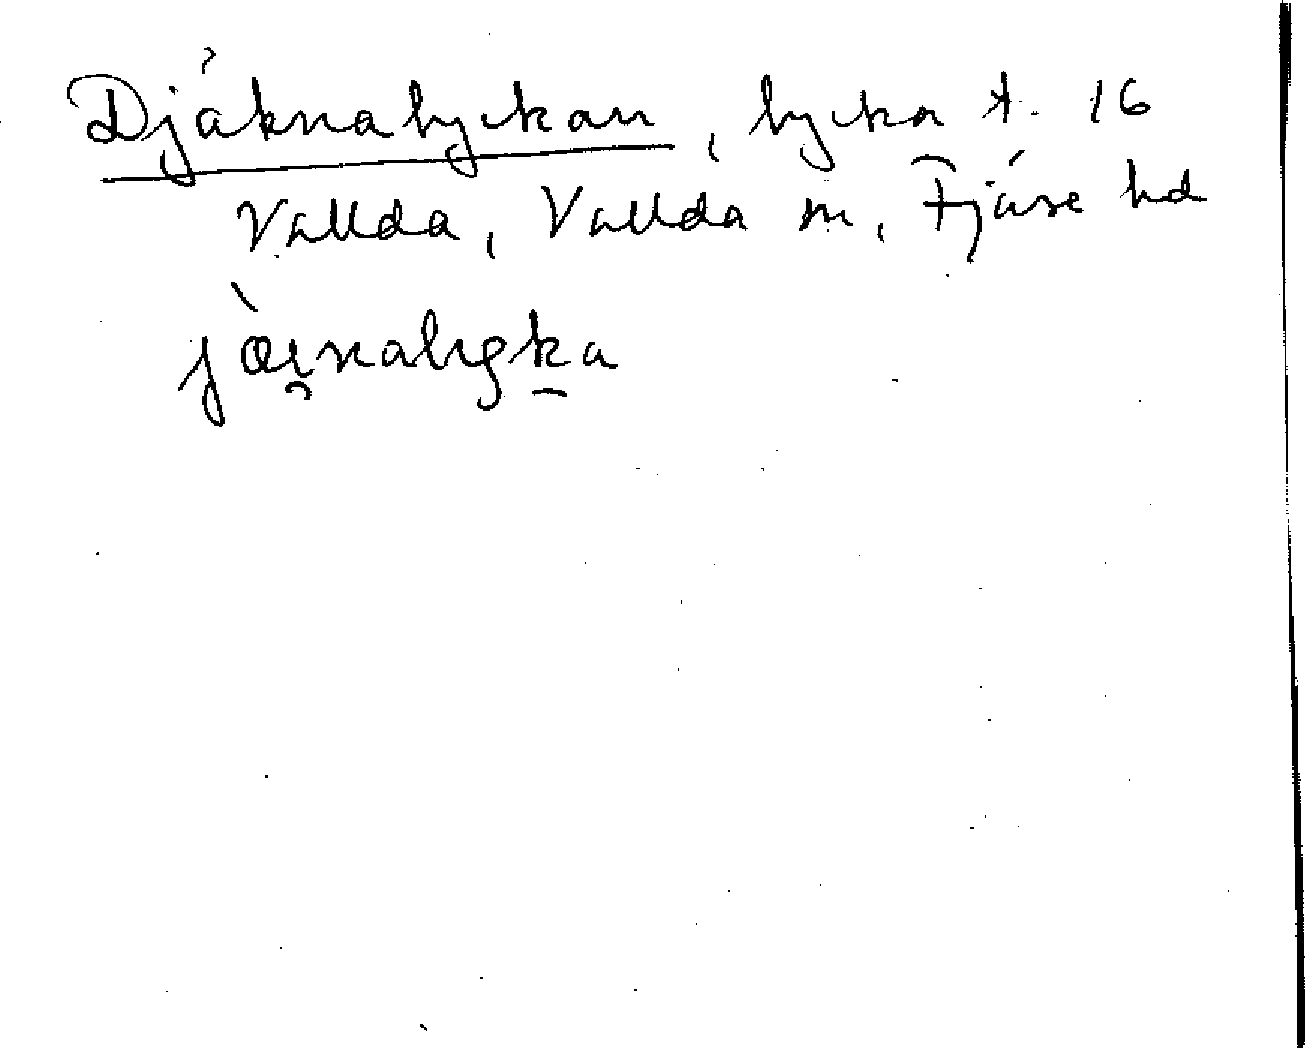 Djäknalyckan, lycka t. 16
Vallda, Vallda sn, Fjäre hd
jæ̀i̯nalyka